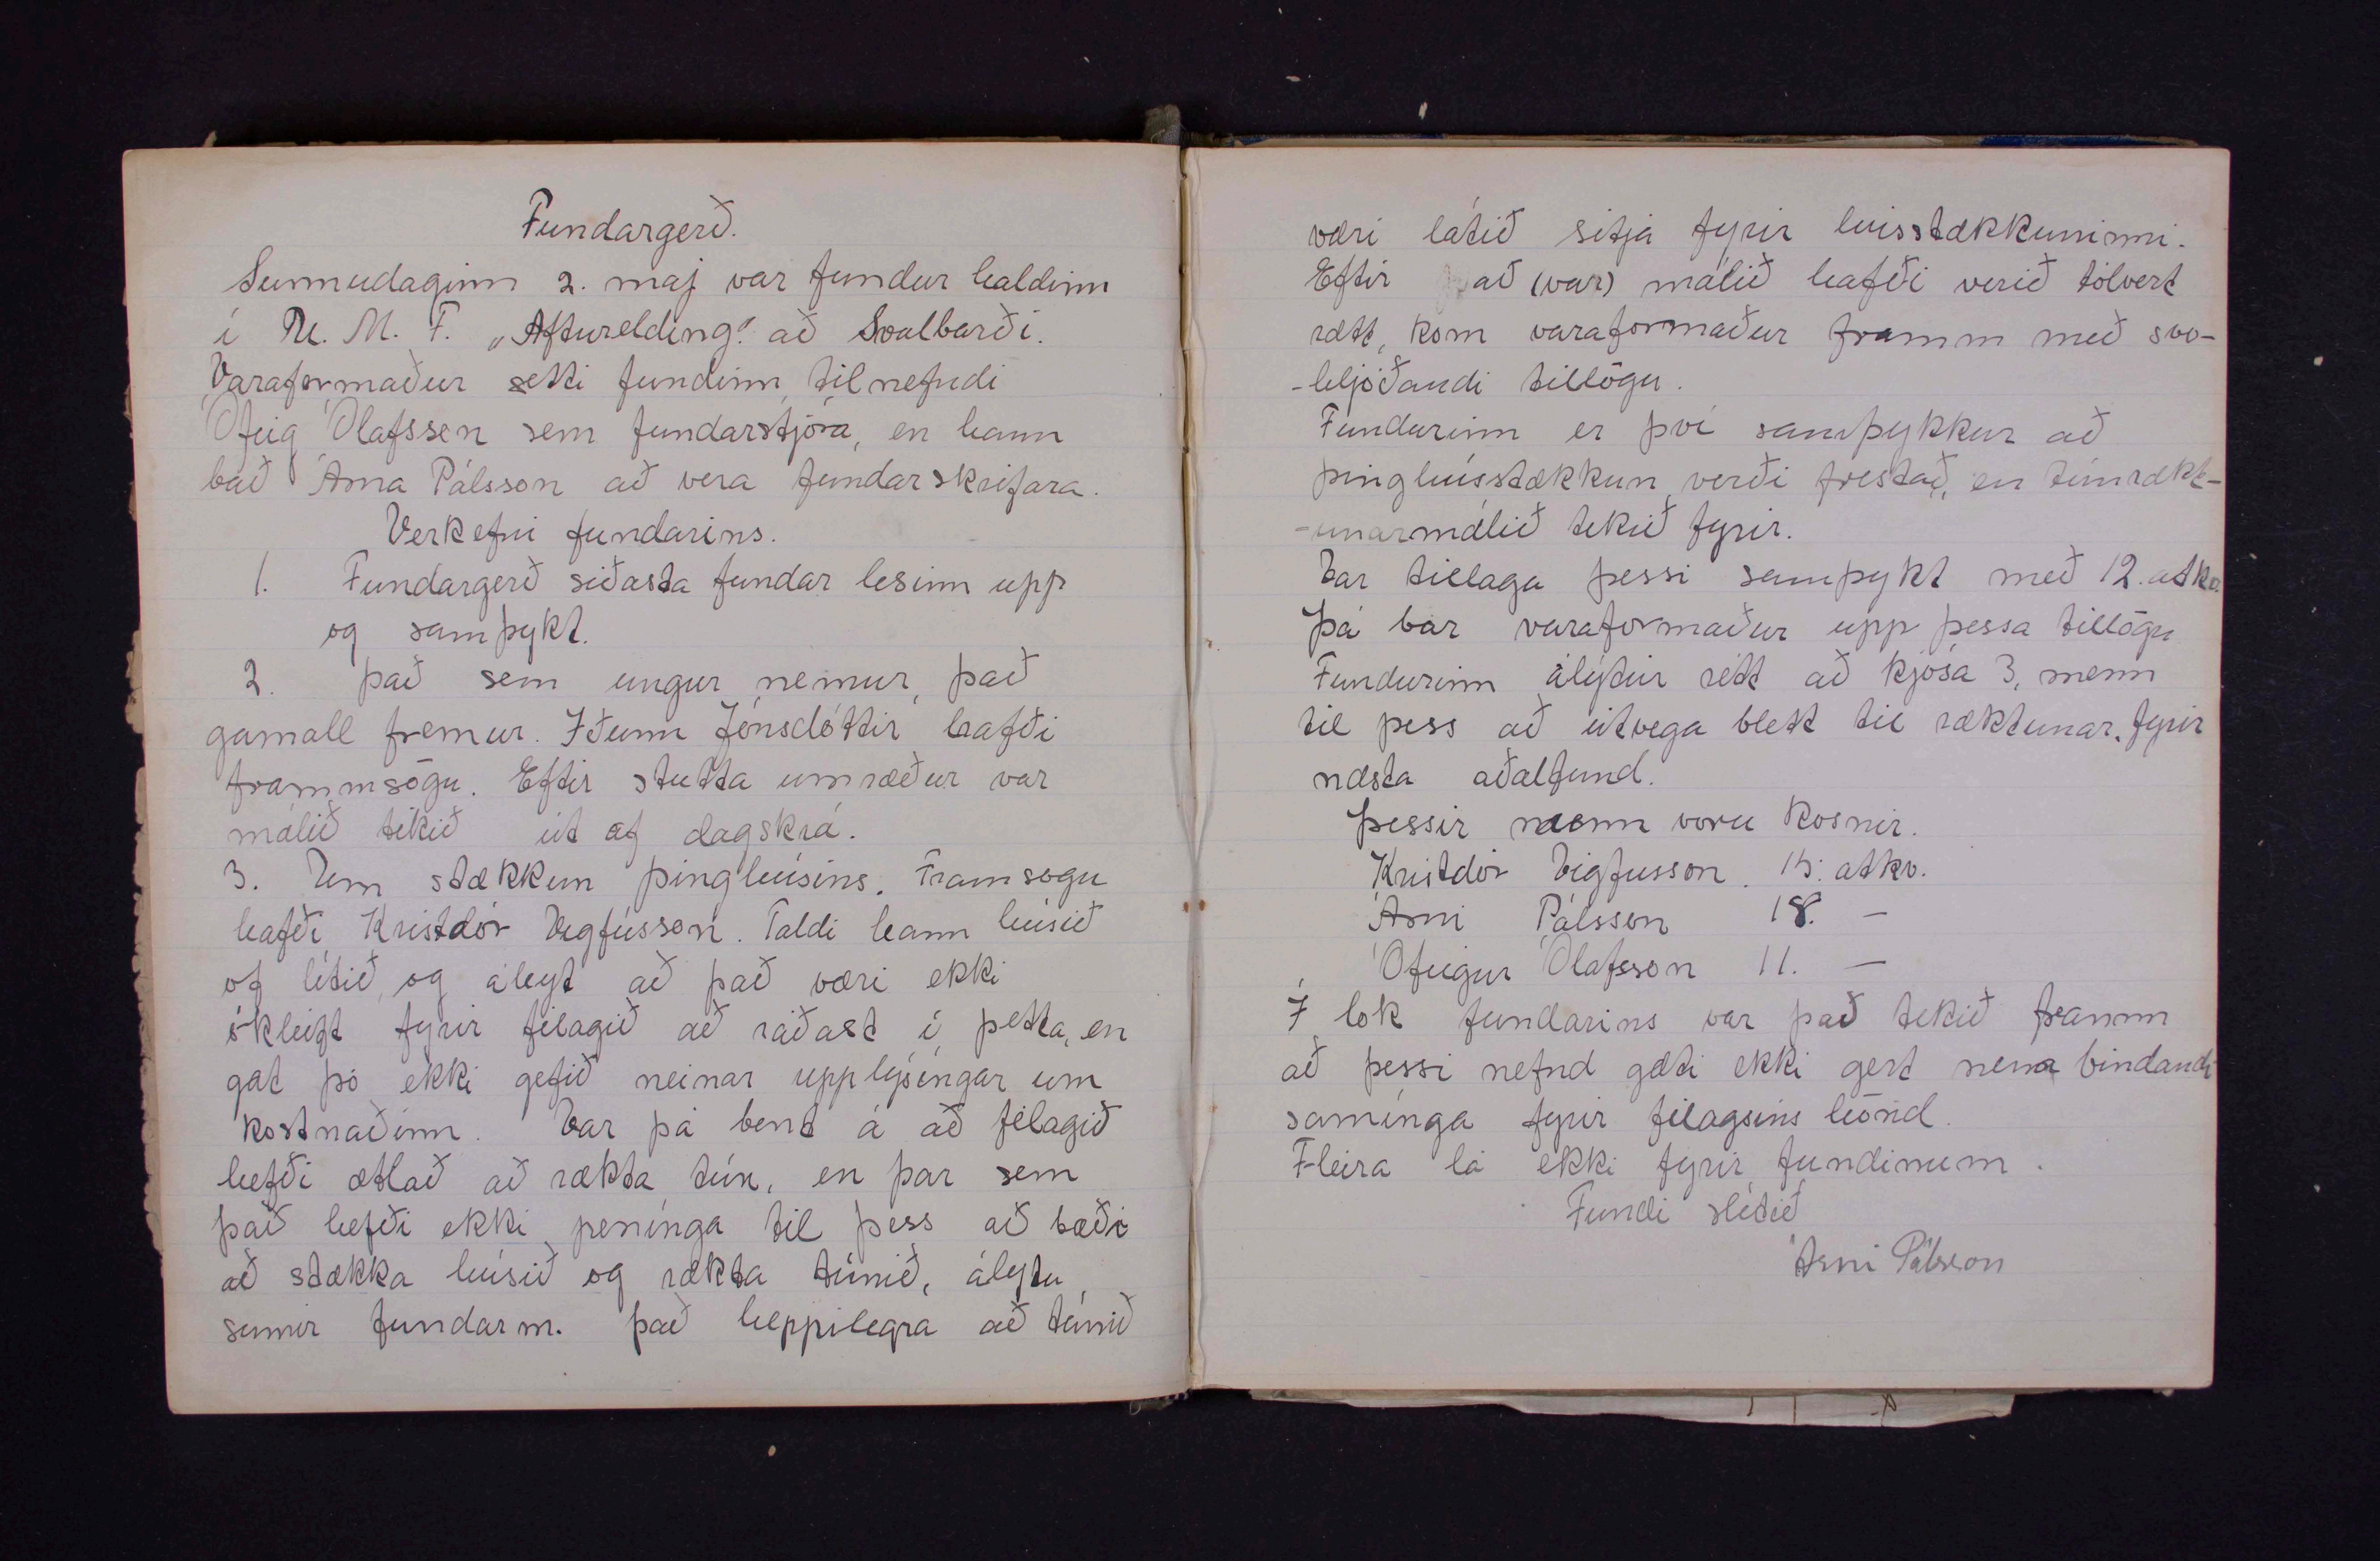 Fundargerð.
Sunnudaginn 2. maj var fundur haldinn
í U. M. F. „Afturelding" að Svalbarði.
Varaformaður setti fundinn, tilnefndi
Ófeig Ólafsson sem fundarstjóra, en hann
bað Árna Pálsson að vera fundarskrifara.
Verkefni fundarins.
1. Fundargerð síðasta fundar lesinn upp
og samþykt.
2. Það sem ungur nemur, það
gamall fremur. Iðunn Jónsdóttir hafði
frammsögu. Eftir stutta umræður var
málið tekið út af dagskrá.
3. Um stækkun þinghúsins. Framsögu
hafði Kristdór Vigfússon. Taldi hann húsið
of lítið, og áleyt að það væri ekki
ókleift fyrir félagið að ráðast í þetta, en
gat þó ekki gefið neinar upplýsíngar um
kostnaðinn. Var þá bent á að félagið
hefði ætlað að rækta tún, en þar sem
það hefði ekki penínga til þess að bæði
að stækka húsið og rækta túnið, álytu
sumir fundarm. það heppilegra að túnið
væri látið sitja fyrir hússtækkuninni.
Eftir að (var) málið hafði verið tölvert
rætt, kom varaformaður framm með svo-
-hljóðandi tillögu.
Fundurinn er því samþykkur að
þinghússtækkun verði frestað, en túnrækt-
-unarmálið tekið fyrir.
Var tillaga þessi samþykt með 12. atkv.
Þá bar varaformaður upp þessa tillögu
Fundurinn álýtur rétt að kjósa 3, menn
til þess að útvega blett til ræktunar. fyrir
næsta aðalfund.
Þessir menn voru kosnir.
Kristdór Vigfusson. 15. atkv.
Árni Pálsson 18. —
Ófeigur Ólafsson 11. —
Í lok fundarins var það tekið framm
að þessi nefnd gæti ekki gert nema bindandi
samínga fyrir félagsins hönd.
Fleira lá ekki fyrir fundinum.
Fundi slitið
Árni Pálsson